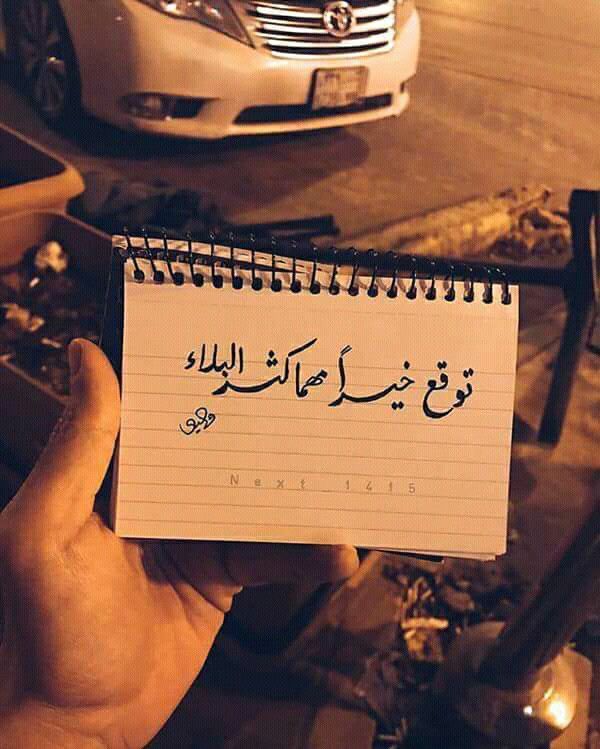 توقع خيراً مهما كثر البلاء
Next_1415